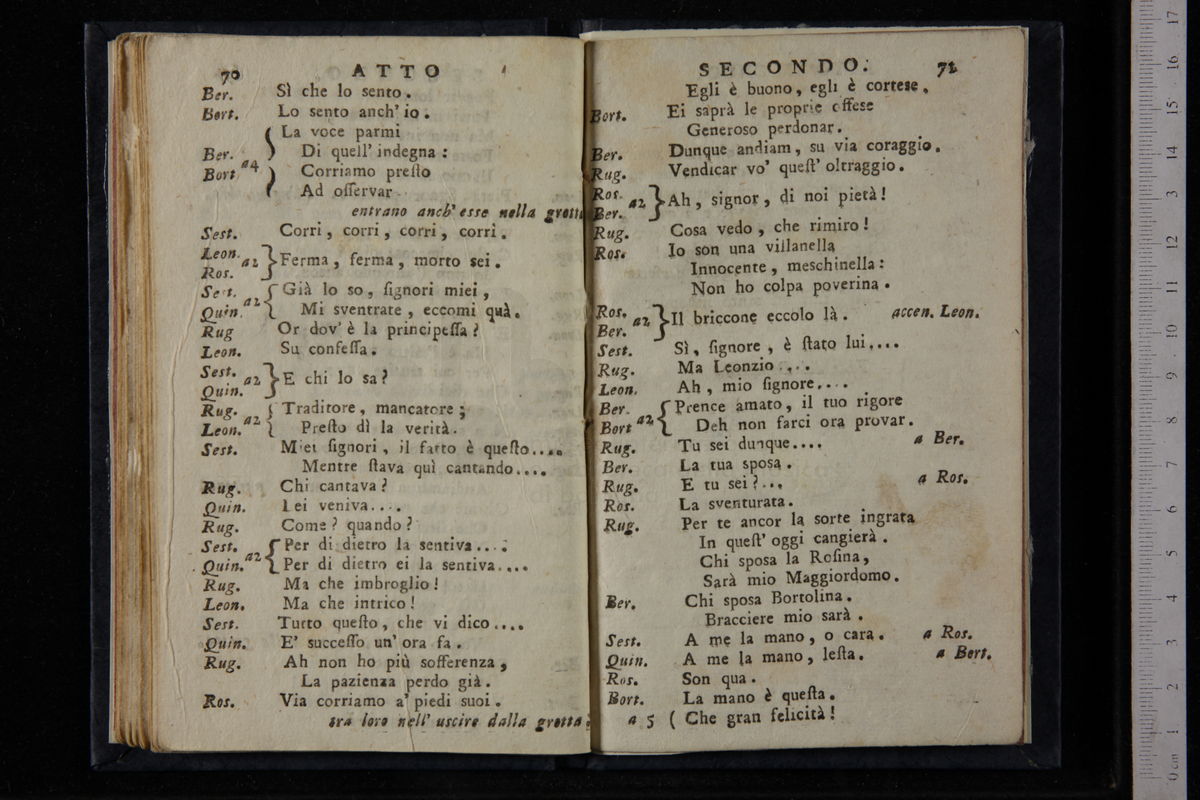 70 ATTO
Ber. Sì che lo sento.
Bort. Lo sento anch' io.
La voce parmi
Ber. Di quell' indegna:
Bort a4 Corriamo preſto
Ad oſſervar
entrano anch' esse nella grotta
Sest. Corri, corri, corri, corri.
Leon. a2 } Ferma, ferma, morto sei.
Ros.
Sest. a2 { Già lo so, ſignori miei,
Quin. Mi sventrate, eccomi quà.
Rug Or dov' è la principeſſa?
Leon. Su confeſſa.
Sest. a2 } E chi lo sa?
Quin.
Rug. a2 { Traditore, mancatore;
Leon. Preſto dì la verità.
Sest. Miei ſignori, il fatto è queſto....
Mentre ſtava quì cantando....
Rug. Chi cantava?
Quin. Lei veniva....
Rug. Come? quando?
Sest. a2 { Per di dietro la sentiva....
Quin. Per di dietro ei la sentiva....
Rug. Ma che imbroglio!
Leon. Ma che intrico!
Sest. Tutto queſto, che vi dico....
Quin. E' succeſſo un' ora fa.
Rug. Ah non ho più sofferenza,
La pazienza perdo già.
Ros. Via corriamo a' piedi suoi.
tra loro nell' uscire dalla grotta.
SECONDO. 71
Egli è buono, egli è cortese.
Bort. Ei saprà le proprie offese
Generoso perdonar.
Ber. Dunque andiam, su via coraggio.
Rug. Vendicar vo' queſt' oltraggio.
Ros. a2 } Ah, signor, di noi pietà!
Ber.
Rug. Cosa vedo, che rimiro!
Ros. Io son una villanella
Innocente, meschinella:
Non ho colpa poverina.
Ros. a2 } Il briccone eccolo là. accen. Leon.
Ber.
Sest. Sì, ſignore, è ſtato lui....
Rug. Ma Leonzio....
Leon. Ah, mio ſignore....
Ber. a2 { Prence amato, il tuo rigore
Bort Deh non farci ora provar.
Rug. Tu sei dunque.... a Ber.
Ber. La tua sposa.
Rug. E tu sei?... a Ros.
Ros. La sventurata.
Rug. Per te ancor la sorte ingrata
In queſt' oggi cangierà.
Chi sposa la Roſina,
Sarà mio Maggiordomo.
Ber. Chi sposa Bortolina.
Bracciere mio sarà.
Sest. A me la mano, o cara. a Ros.
Quin. A me la mano, leſta. a Bert.
Ros. Son qua.
Bort. La mano è queſta.
a 5 ( Che gran felicità!
0 cm 1 2 3 4 5 6 7 8 9 10 11 12 13 14 15 16 17